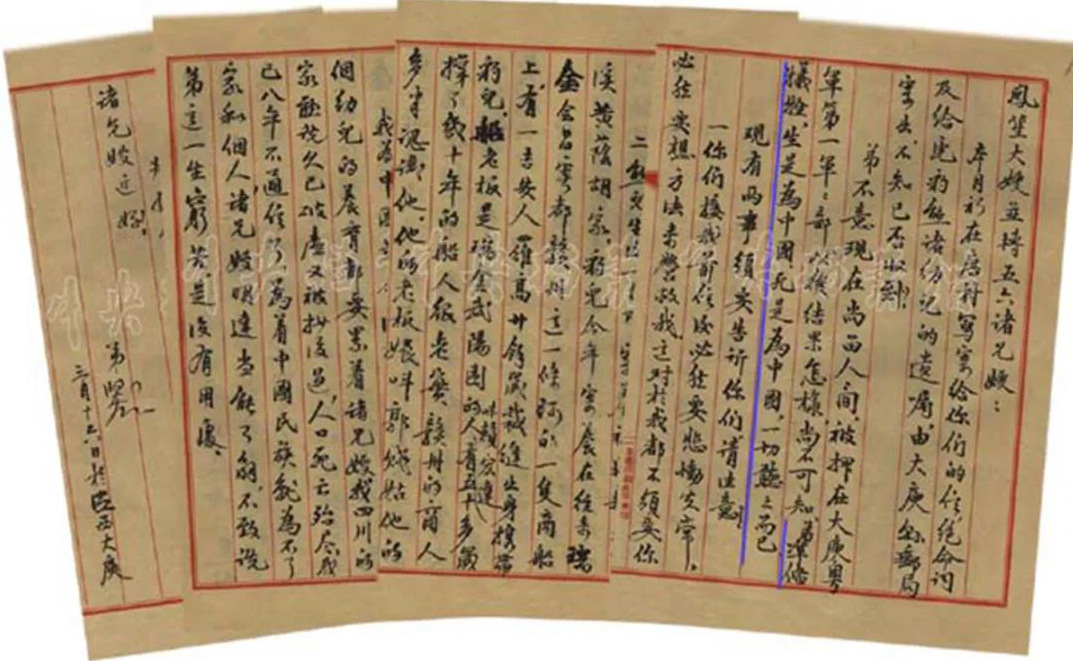 鳳笙大嫂並轉五六諸兄嫂：
本月初在唐村寫寄給你們的信、絕命詞
及給虎豹熊諸幼兒的遺囑、由大庾縣郵局
寄出、不知已否收到？
弟不意現在尚留人間、被押在大庾粵
軍第一軍軍部、以後結果怎樣、尚不可知、弟準備
犧牲、生是為中國、死是為中國、一切聽之而已、
現有兩事須要告訴你們、請注意！
一你們接我前信後必然要悲慟失常、
必然要想方法來營救我、這對於我都不須要、你
二熊兒生後一月
溪黃蔭胡家、豹兒今年寄養在往來瑞
金會昌雩都贛州這一條河的一隻商船
上、有一吉安人羅高廿餘歲、裁縫出身、攜帶
豹兒、船老板是瑞金武陽圍的人叫賴宏達、有五十多歲
撐了幾十年的船、人很老實、贛州的商人
多半認識他、他的老板娘叫郭賤姑、他的
個幼兒的養育都要累着諸兄嫂、我四川的
家聽說久已破產又被抄沒過、人口死亡殆盡、我
已八年不通信了、為着中國民族就為不了
家和個人、諸兄嫂明達當能了解、不致說
弟這一生窮苦、是沒有用處、
諸兄嫂近好、
弟堅
三月十六日於江西大庾